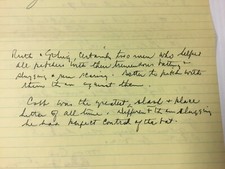 Ruth & Gehrig, certainly two men who helped
all pitchers with their tremendous batting -
slugging & run scoring. Better to pitch with
them than against them.
Cobb was the greatest slash & place
hitter of all time. Different than slugging
he had perfect control of the bat.